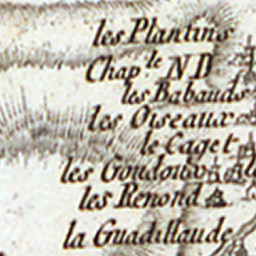 les Plantins
Chap.le N D
les Babauds
les Oiseaux
le Caget
les Goudoux
les Renond
la Guadillaude